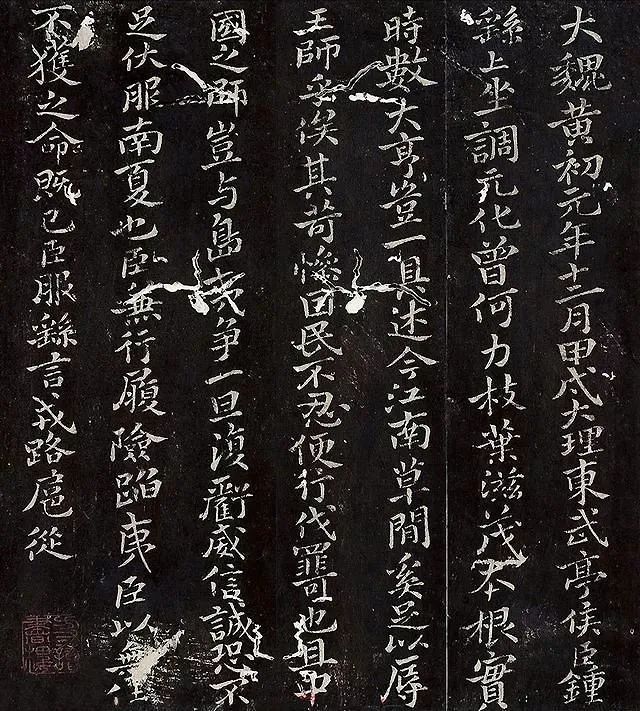 大魏黃初元年十二月甲戌大理東武亭侯臣鍾
繇上坐調元化曾何力枝葉滋茂本根實
時數大亨豈一具述今江南草間奚足以辱
王師乎俟其苛慘因民不忍便行伐罪可也且中
國之師豈与島夷爭一旦威信誠恐不
足伏服南夏也臣無行履險蹈夷臣以無任
不獲之命既已臣服繇言戎路扈從